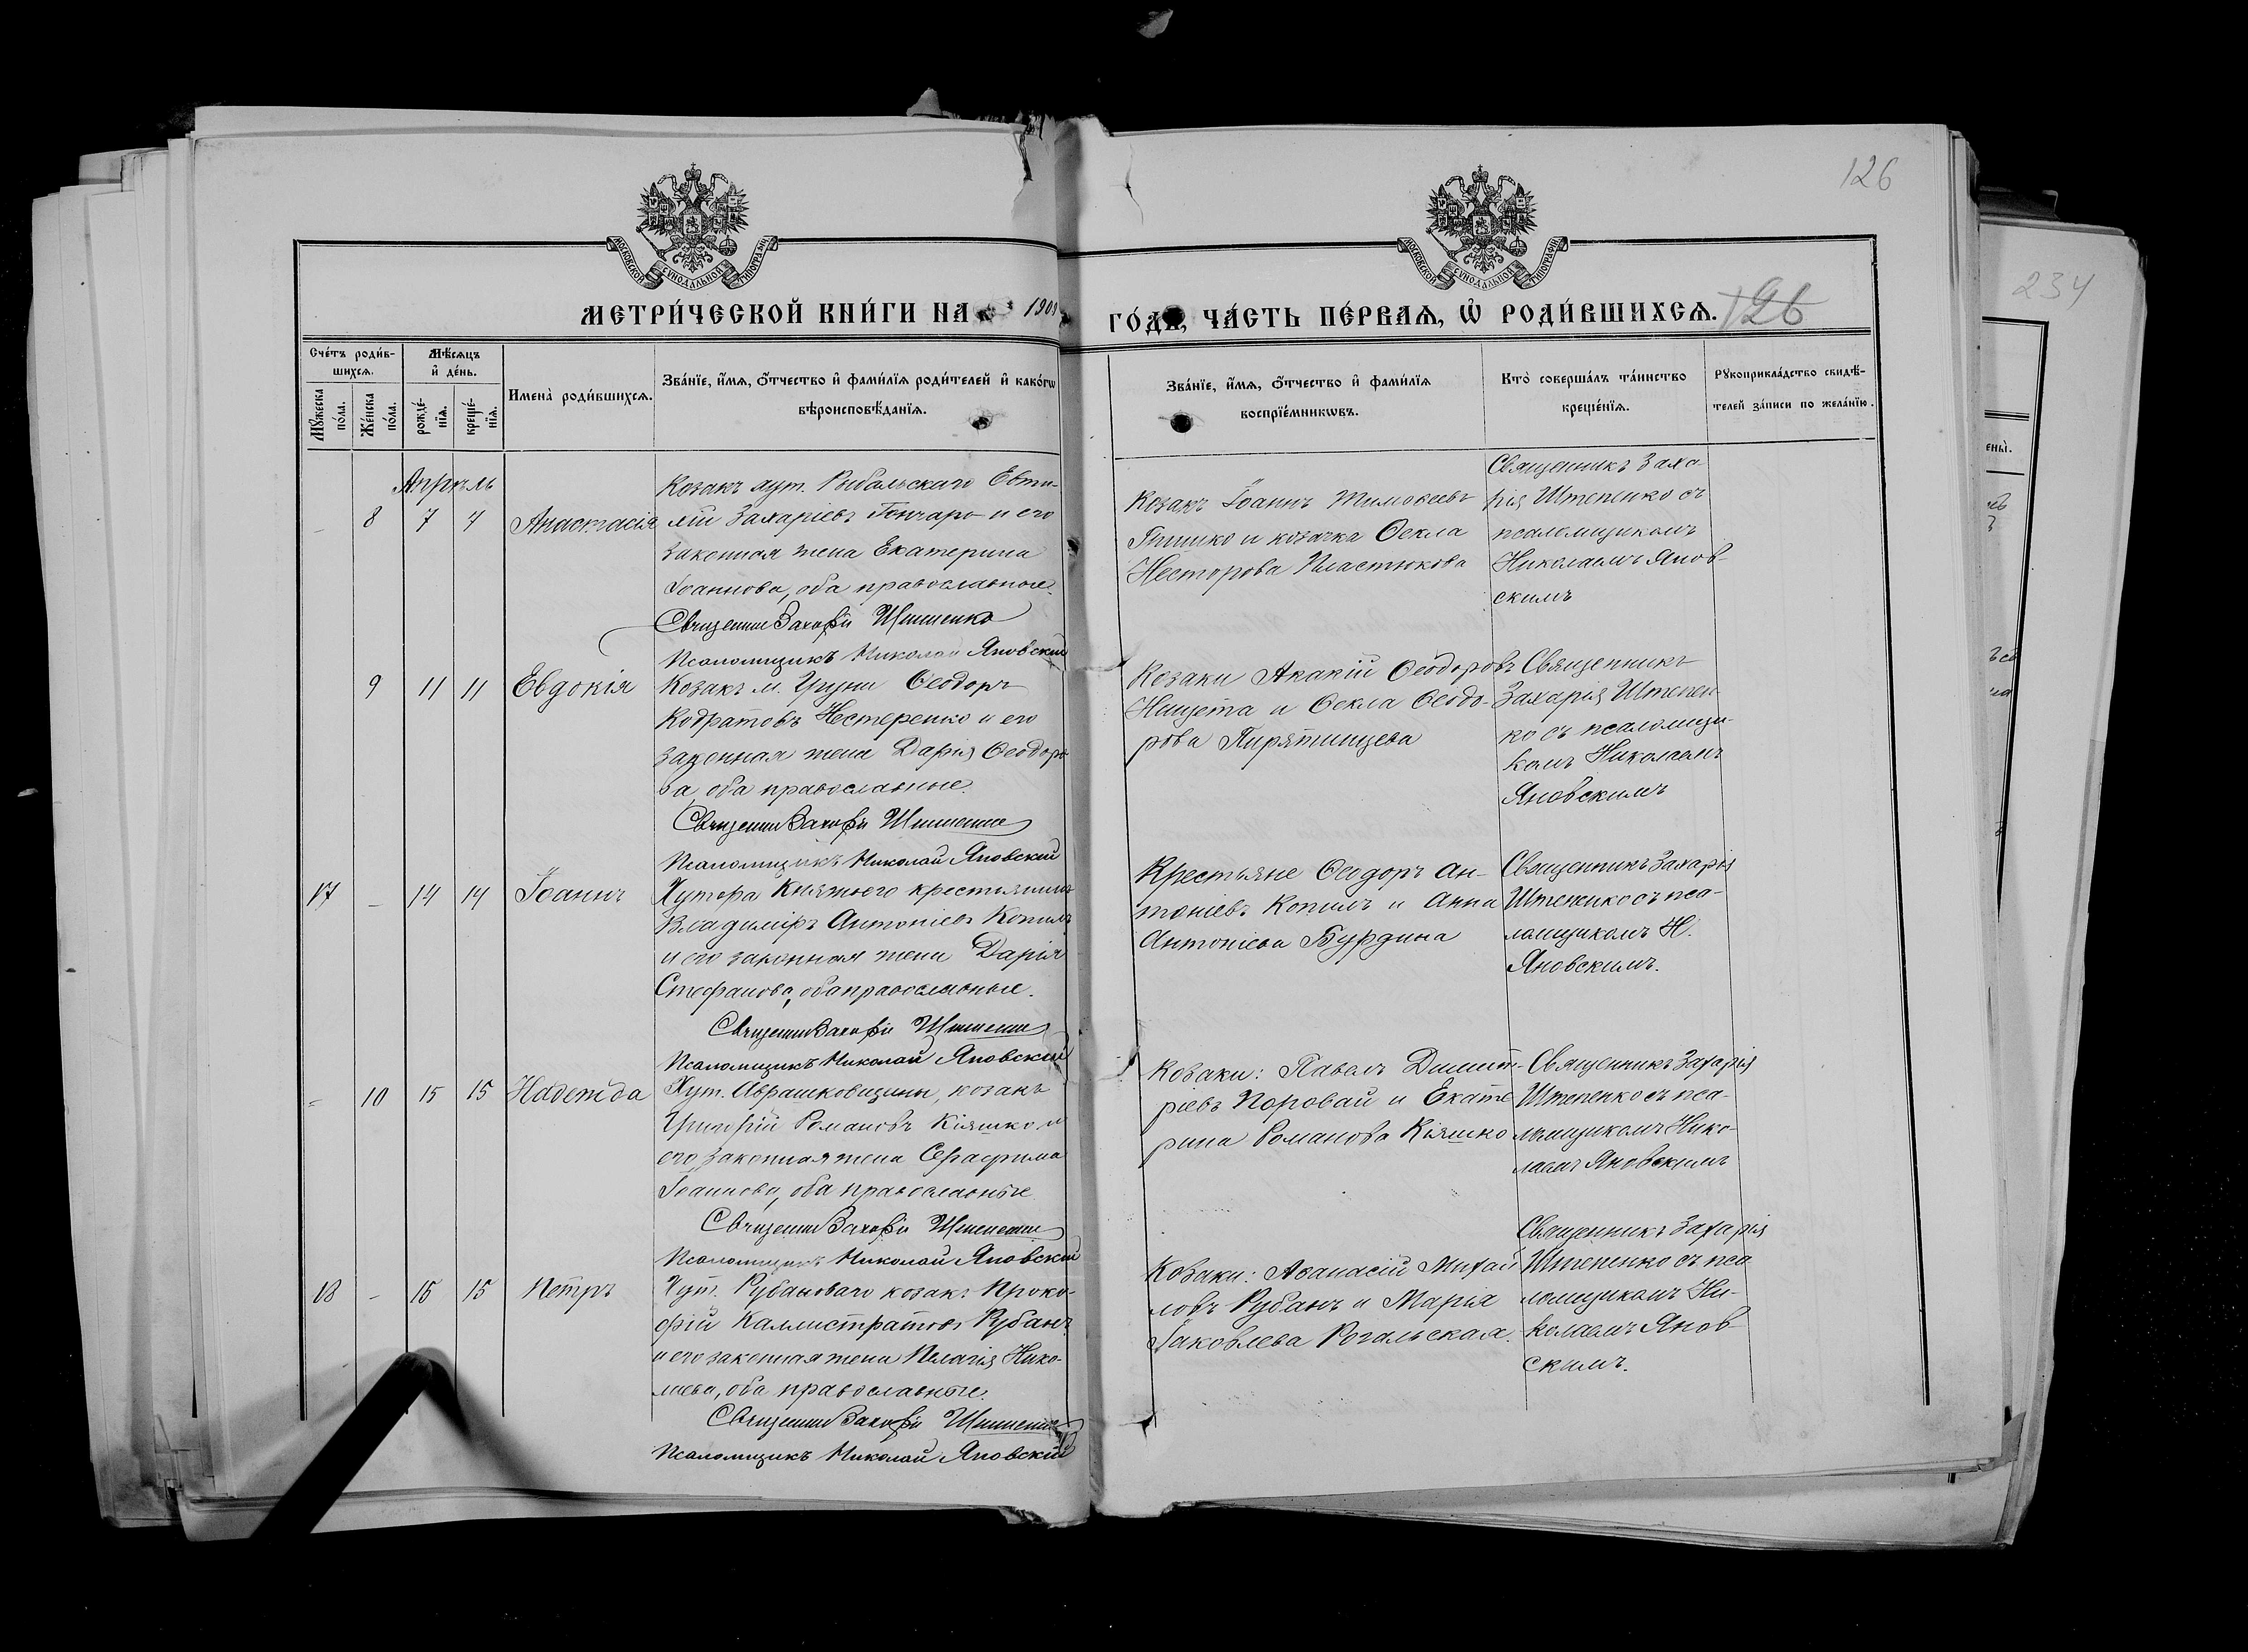 126
234
МОСКОВСКОЙ СѴНОДАЛЬНОЙ ТИПОГРАФІИ
МОСКОВСКОЙ СѴНОДАЛЬНОЙ ТИПОГРАФІИ
МЕТРИ́ЧЕСКОЙ КНИ́ГИ НА 190
ГО́ДА, ЧА́СТЬ ПЕ́РВАѦ, Ѡ҆ РОДИ́ВШИХСѦ.
126
Сче́тъ роди́в-
шихсѧ.
Мꙋ́жеска
по́ла.
Же́нска
по́ла.
Мѣ́сѧцъ
и҆ де́нь.
рожде́-
нїѧ.
креще́-
нїѧ.
Имена̀ роди́вшихсѧ.
Зва́нїе, и҆́мѧ, ѻ҆́тчество и҆ фами́лїѧ роди́телей и҆ како́гѡ
вѣроисповѣ́данїѧ.
Зва́нїе, и҆́мѧ, ѻ҆́тчество и҆ фами́лїѧ
воспрїе́мникѡвъ.
Кто̀ соверша́лъ та́инство
креще́нїѧ.
Рꙋкоприкла́дство свидѣ́-
телей за́писи по жела́нїю.
Апрѣль
8 7 7 Анастасія
Козакъ хут. Рыбальскаго Евти-
хій Захаріевъ Гончаръ и его
законная жена Екатерина
Іоаннова, оба православные.
Священникъ Захарія Штепенко
Псаломщикъ Николай Яновскій
Козакъ Іоаннъ Тимоѳеевъ
и козачка Ѳекла
Несторова Пластюкова
Священникъ Заха-
рія Штепенко съ
псаломщикомъ
Николаемъ Янов-
скимъ
9 11 11 Евдокія
Козакъ м. Груни Ѳеодоръ
Кодратовъ Нестеренко и его
законная жена Дарія Ѳеодоро-
ва, оба православные.
Священникъ Захарія Штепенко
Псаломщикъ Николай Яновскій
Козаки Акакій Ѳеодоровъ
Нищета и Ѳекла Ѳеодо-
рова Пирятинцева
Священникъ
Захарія Штепен-
ко съ псаломщи-
комъ Николаемъ
Яновскимъ
17 - 14 14 Іоаннъ
Хутора Княжого крестьянинъ
Владиміръ Антоніевъ Копилъ
и его законная жена Дарія
Стефанова, оба православные.
Священникъ Захарія Штепенко
Псаломщикъ Николай Яновскій
Крестьяне Ѳеодоръ Ан-
тоніевъ Копилъ и Анна
Антоніева Бурдина
Священникъ Захарія
Штепенко съ пса-
ломщикомъ Н.
Яновскимъ.
10 15 15 Надежда
Хут. Аврашковщины, козакъ
Григорій Романовъ Кіяшко и
его законная жена Серафима
Іоаннова, оба православные
Священникъ Захарія Штепенко
Псаломщикъ Николай Яновскій
Козаки: Павелъ Димит-
ріевъ Поровай и Екате
рина Романова Кіяшко
Священникъ Захарія
Штепенко съ пса-
ломщикомъ Нико-
лаемъ Яновскимъ
18 - 15 15 Петръ
Хут. Рубановаго козакъ Проко-
фій Каллистратовъ Рубанъ
и его законная жена Пелагія Нико-
лаева, оба православные.
Священникъ Захарія Штепенко
Псаломщикъ Николай Яновскій
Козаки: Аѳанасій Михай
ловъ Рубанъ и Марія
Іаковлева Рогальская.
Священникъ Захарія
Штепенко съ пса
ломщикомъ Ни-
колаемъ Янов-
скимъ.